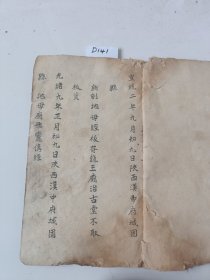 D141
宣統二年九月初九日陝西漢中府城固
縣
新刻地母經後存該王廟治古堂不取
板資
光緒九年正月初九日陝西漢中府城固
縣地母廟飛鸞傳經